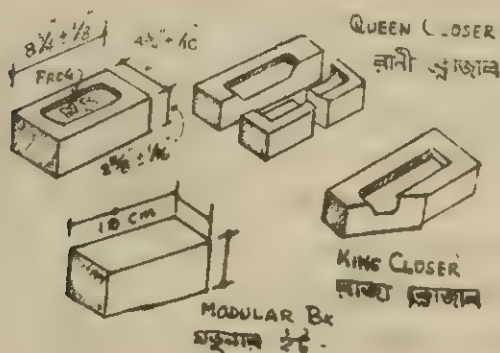 8¾" ± ⅛"
FROG
QUEEN CLOSER
রানী ক্লোজার
10 CM
KING CLOSER
রাজা ক্লোজার
MODULAR BK
মডুলার ইট